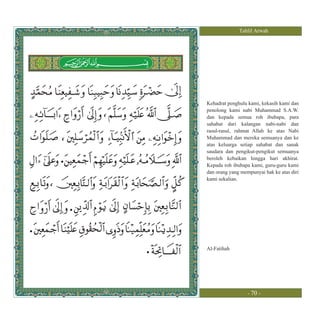 Tahlil Arwah
بِسْمِ اللَّهِ الرَّحْمَٰنِ الرَّحِيمِ
إِلَىٰ حَضْرَةِ سَيِّدِنَا وَحَبِيبِنَا وَشَفِيعِنَا مُحَمَّدٍ
صَلَّى اللَّهُ عَلَيْهِ وَسَلَّمَ ، وَإِلَىٰ أَرْوَاحِ ءَابَآئِهِۦ
وَإِخْوَانِهِۦ مِنَ الْأَنْبِيَآءِ وَالْمُرْسَلِينَ ، صَلَوَاتُ
اللَّهِ وَسَلَامُهُ عَلَيْهِ وَعَلَيْهِمْ أَجْمَعِينَ. وَعَلَىٰ ءَالِ
كُلٍّ وَالصَّحَابَةِ وَالْقَرَابَةِ وَالتَّابِعِينَ ، وَتَابِعِي
التَّابِعِينَ بِإِحْسَانٍ إِلَىٰ يَوْمِ الدِّينِ. وَإِلَىٰ أَرْوَاحِ
وَالِدِينَا وَمُعَلِّمِينَا وَذَوِي الْحُقُوقِ عَلَيْنَا أَجْمَعِينَ.
الْفَاتِحَةَ.
Kehadrat penghulu kami, kekasih kami dan
penolong kami nabi Muhammad S.A.W.
dan kepada semua roh ibubapa, para
sahabat dari kalangan nabi-nabi dan
rasul-rasul, rahmat Allah ke atas Nabi
Muhammad dan mereka semuanya dan ke
atas keluarga setiap sahabat dan sanak
saudara dan pengikut-pengikut semuanya
beroleh kebaikan hingga hari akhirat.
Kepada roh ibubapa kami, guru-guru kami
dan orang yang mempunyai hak ke atas diri
kami sekalian.
Al-Fatihah
- 70 -